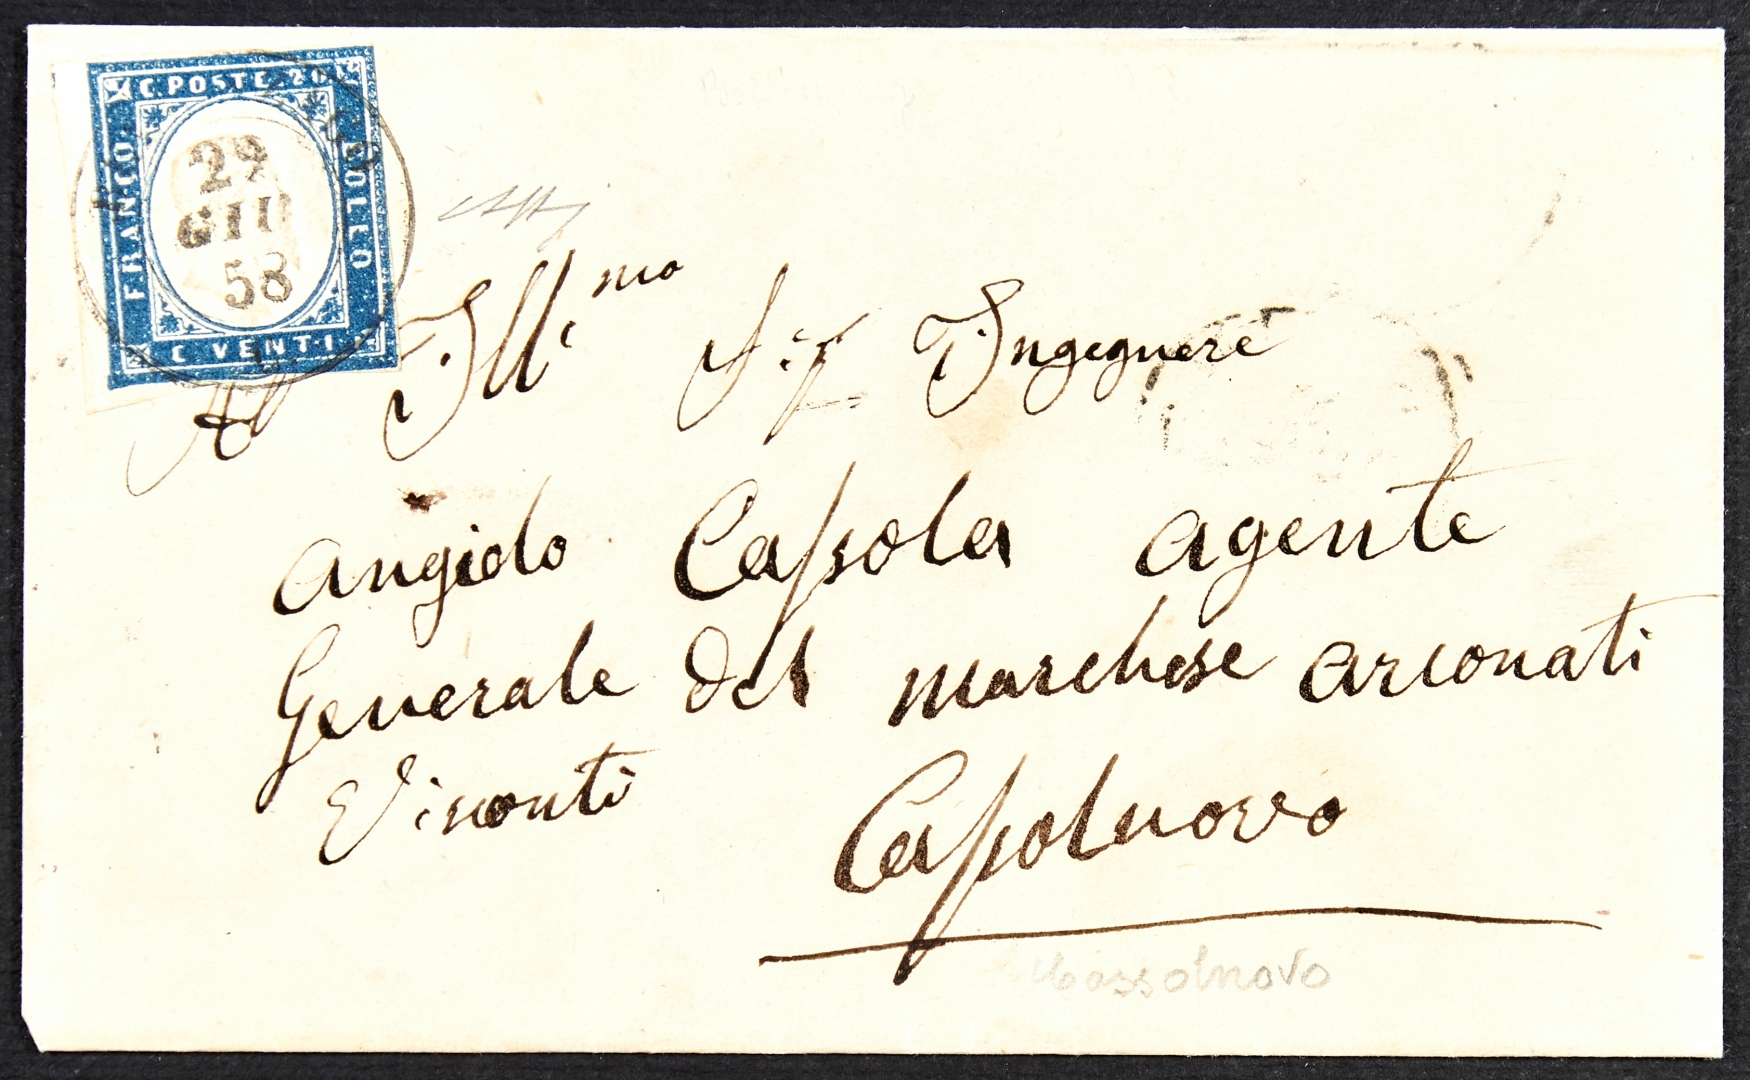 C. POSTE 20
FRANCO
BOLLO
C VENTI
29
GIU
58
All Ill.mo Sig Ingegnere
Angielo Cassola Agente
Generale del marchese Arconati
Visconti
Cassolnovo
Cassolnovo